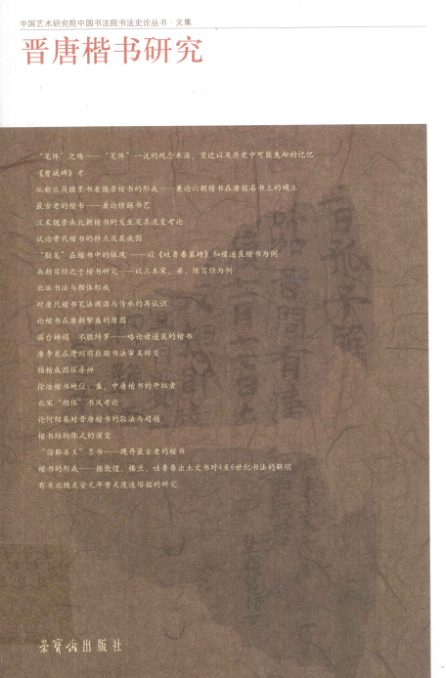 中国艺术研究院中国书法院书法史论丛书·文集
晋唐楷书研究
“笔阵”之悔——“笔阵”一说的观念来源、变迁以及历史中可能失却的记忆
《曹娥碑》考
从朝出具魏墨书看魏晋楷书的形成——兼论六朝楷书在唐能名书上的确立
最古老的楷书——兼论钟繇书艺
汉末魏晋南北朝楷书的发生及其流变考论
试论晋代楷书的特点及其成因
“胎笔”在楷书中的体现——以《吐鲁番墓砖》和褚遂良楷书为例
南朝写经之于楷书研究——以三本宋、梁、陈写经为例
北派书法与颜体形成
对唐代楷书笔法渊源与传承的再认识
论楷书在唐朝繁盛的原因
瑶台婵娟 不胜绮罗——略论褚遂良的楷书
唐李邕在湾州前后期书法审美转变
颜楷成因探善辨
徐浩楷书地位：盛、中唐楷书的开拓者
北宋“颜体”书风考论
论何绍基对晋唐楷书的取法与超越
楷书结构体式的演变
“谄黔吾王”墨书——现存最古老的楷书
楷书的形成——据敦煌、楼兰、吐鲁番出土文书对4至6世纪书法的解明
有关北魏天安元年曹天度造塔铭的研究
荣宝斋出版社